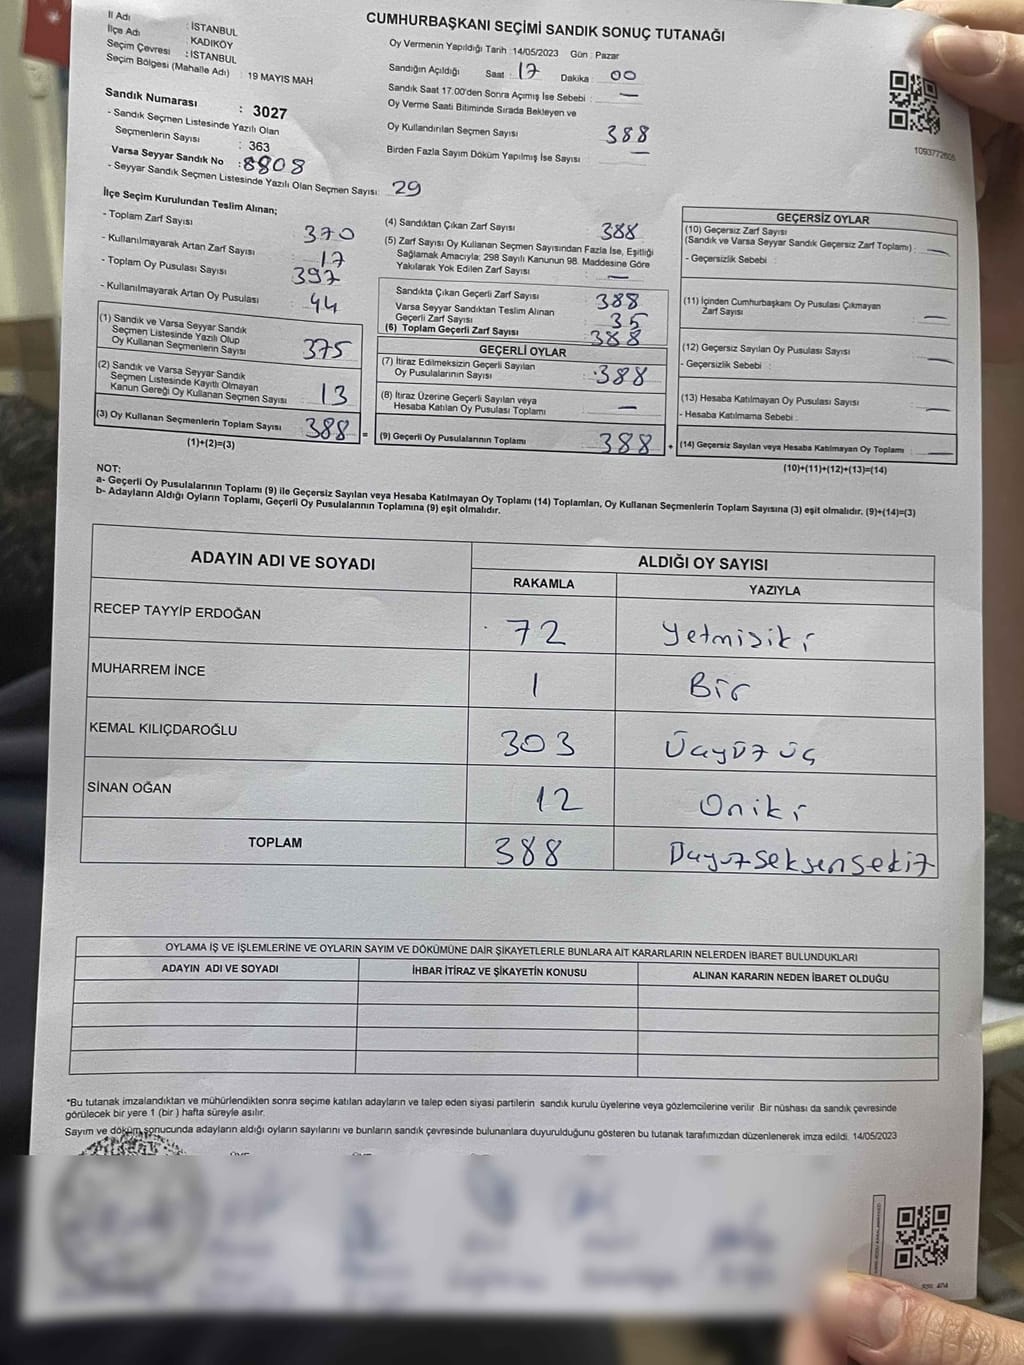 CUMHURBAŞKANI SEÇİMİ SANDIK SONUÇ TUTANAĞI
İl Adı : İSTANBUL
İlçe Adı : KADIKÖY
Seçim Çevresi : İSTANBUL
Seçim Bölgesi (Mahalle Adı) : 19 MAYIS MAH
Sandık Numarası : 3027
- Sandık Seçmen Listesinde Yazılı Olan
Seçmenlerin Sayısı : 363
Varsa Seyyar Sandık No : 8808
- Seyyar Sandık Seçmen Listesinde Yazılı Olan Seçmen Sayısı : 29
Oy Vermenin Yapıldığı Tarih :14/05/2023 Gün : Pazar
Sandığın Açıldığı Saat : 17 Dakika : 00
Sandık Saat 17.00'den Sonra Açımış İse Sebebi : —
Oy Verme Saati Bitiminde Sırada Bekleyen ve
Oy Kullandırılan Seçmen Sayısı 388
Birden Fazla Sayım Döküm Yapılmış İse Sayısı : —
1093772605
İlçe Seçim Kurulundan Teslim Alınan;
- Toplam Zarf Sayısı : 370
- Kullanılmayarak Artan Zarf Sayısı : 17
- Toplam Oy Pusulası Sayısı : 397
- Kullanılmayarak Artan Oy Pusulası : 44
(1) Sandık ve Varsa Seyyar Sandık
Seçmen Listesinde Yazılı Olup
Oy Kullanan Seçmenlerin Sayısı : 375
(2) Sandık ve Varsa Seyyar Sandık
Seçmen Listesinde Kayıtlı Olmayan
Kanun Gereği Oy Kullanan Seçmen Sayısı : 13
(3) Oy Kullanan Seçmenlerin Toplam Sayısı : 388 =
(1)+(2)=(3)
(4) Sandıktan Çıkan Zarf Sayısı : 388
(5) Zarf Sayısı Oy Kullanan Seçmen Sayısından Fazla İse, Eşitliği
Sağlamak Amacıyla; 298 Sayılı Kanunun 98. Maddesine Göre
Yakılarak Yok Edilen Zarf Sayısı : —
Sandıkta Çıkan Geçerli Zarf Sayısı : 388
Varsa Seyyar Sandıktan Teslim Alınan
Geçerli Zarf Sayısı : 35
(6) Toplam Geçerli Zarf Sayısı : 388
GEÇERLİ OYLAR
(7) İtiraz Edilmeksizin Geçerli Sayılan
Oy Pusulalarının Sayısı : 388
(8) İtiraz Üzerine Geçerli Sayılan veya
Hesaba Katılan Oy Pusulası Toplamı : —
(9) Geçerli Oy Pusulalarının Toplamı : 388 +
GEÇERSİZ OYLAR
(10) Geçersiz Zarf Sayısı
(Sandık ve Varsa Seyyar Sandık Geçersiz Zarf Toplamı) : —
- Geçersizlik Sebebi :
(11) İçinden Cumhurbaşkanı Oy Pusulası Çıkmayan
Zarf Sayısı : —
(12) Geçersiz Sayılan Oy Pusulası Sayısı : —
- Geçersizlik Sebebi :
(13) Hesaba Katılmayan Oy Pusulası Sayısı : —
- Hesaba Katılmama Sebebi :
(14) Geçersiz Sayılan veya Hesaba Katılmayan Oy Toplamı : —
(10)+(11)+(12)+(13)=(14)
NOT:
a- Geçerli Oy Pusulalarının Toplamı (9) ile Geçersiz Sayılan veya Hesaba Katılmayan Oy Toplamı (14) Toplamları, Oy Kullanan Seçmenlerin Toplam Sayısına (3) eşit olmalıdır. (9)+(14)=(3)
b- Adayların Aldığı Oyların Toplamı, Geçerli Oy Pusulalarının Toplamına (9) eşit olmalıdır.
ADAYIN ADI VE SOYADI ALDIĞI OY SAYISI
RAKAMLA YAZIYLA
RECEP TAYYİP ERDOĞAN 72 Yetmişiki
MUHARREM İNCE 1 Bir
KEMAL KILIÇDAROĞLU 303 Üçyüz üç
SİNAN OĞAN 12 Oniki
TOPLAM 388 Üçyüzseksensekiz
OYLAMA İŞ VE İŞLEMLERİNE VE OYLARIN SAYIM VE DÖKÜMÜNE DAİR ŞİKAYETLERLE BUNLARA AİT KARARLARIN NELERDEN İBARET BULUNDUKLARI
ADAYIN ADI VE SOYADI İHBAR İTİRAZ VE ŞİKAYETİN KONUSU ALINAN KARARIN NEDEN İBARET OLDUĞU
*Bu tutanak imzalandıktan ve mühürlendikten sonra seçime katılan adayların ve talep eden siyasi partilerin sandık kurulu üyelerine veya gözlemcilerine verilir .Bir nüshası da sandık çevresinde
görülecek bir yere 1 (bir ) hafta süreyle asılır.
Sayım ve döküm sonucunda adayların aldığı oyların sayılarını ve bunların sandık çevresinde bulunanlara duyurulduğunu gösteren bu tutanak tarafımızdan düzenlenerek imza edildi. 14/05/2023